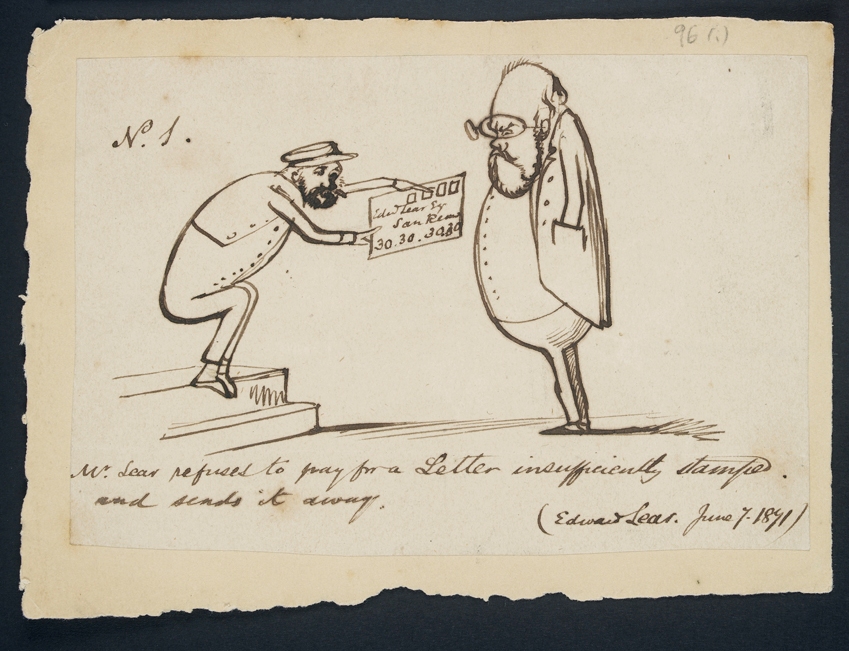 96 (1)
No. 1.
Edwd Lear Esq
San Remo
30. 30. 30.30
Mr. Lear refuses to pay for a Letter insufficiently stamped.
and sends it away.
(Edward Lear. June 7. 1871)